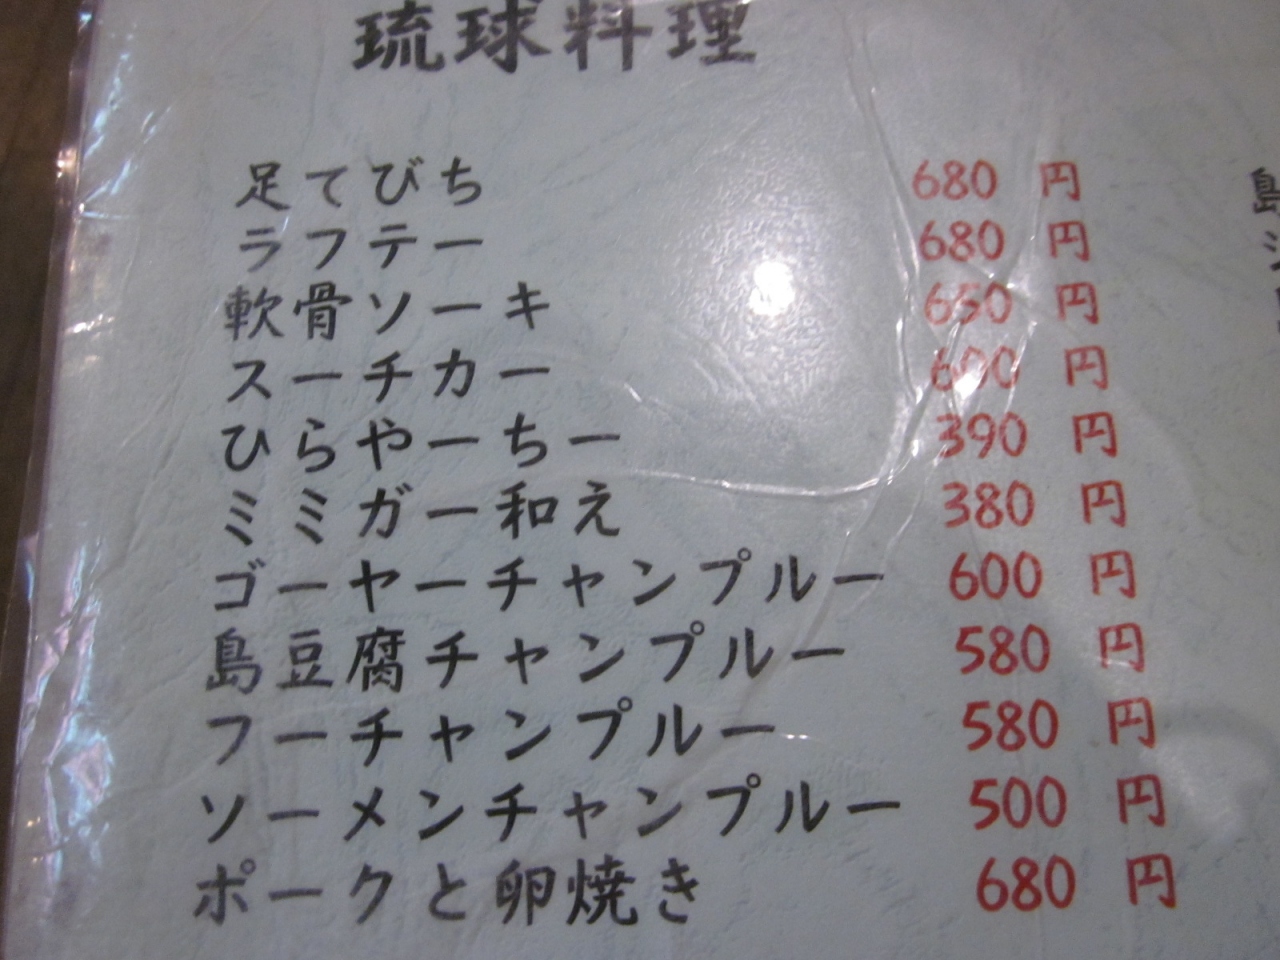 琉球料理
足てびち 680 円
ラフテー 680 円
軟骨ソーキ 650 円
スーチカー 600 円
ひらやーちー 390 円
ミミガー和え 380 円
ゴーヤーチャンプルー 600 円
島豆腐チャンプルー 580 円
フーチャンプルー 580 円
ソーメンチャンプルー 500 円
ポークと卵焼き 680 円
島